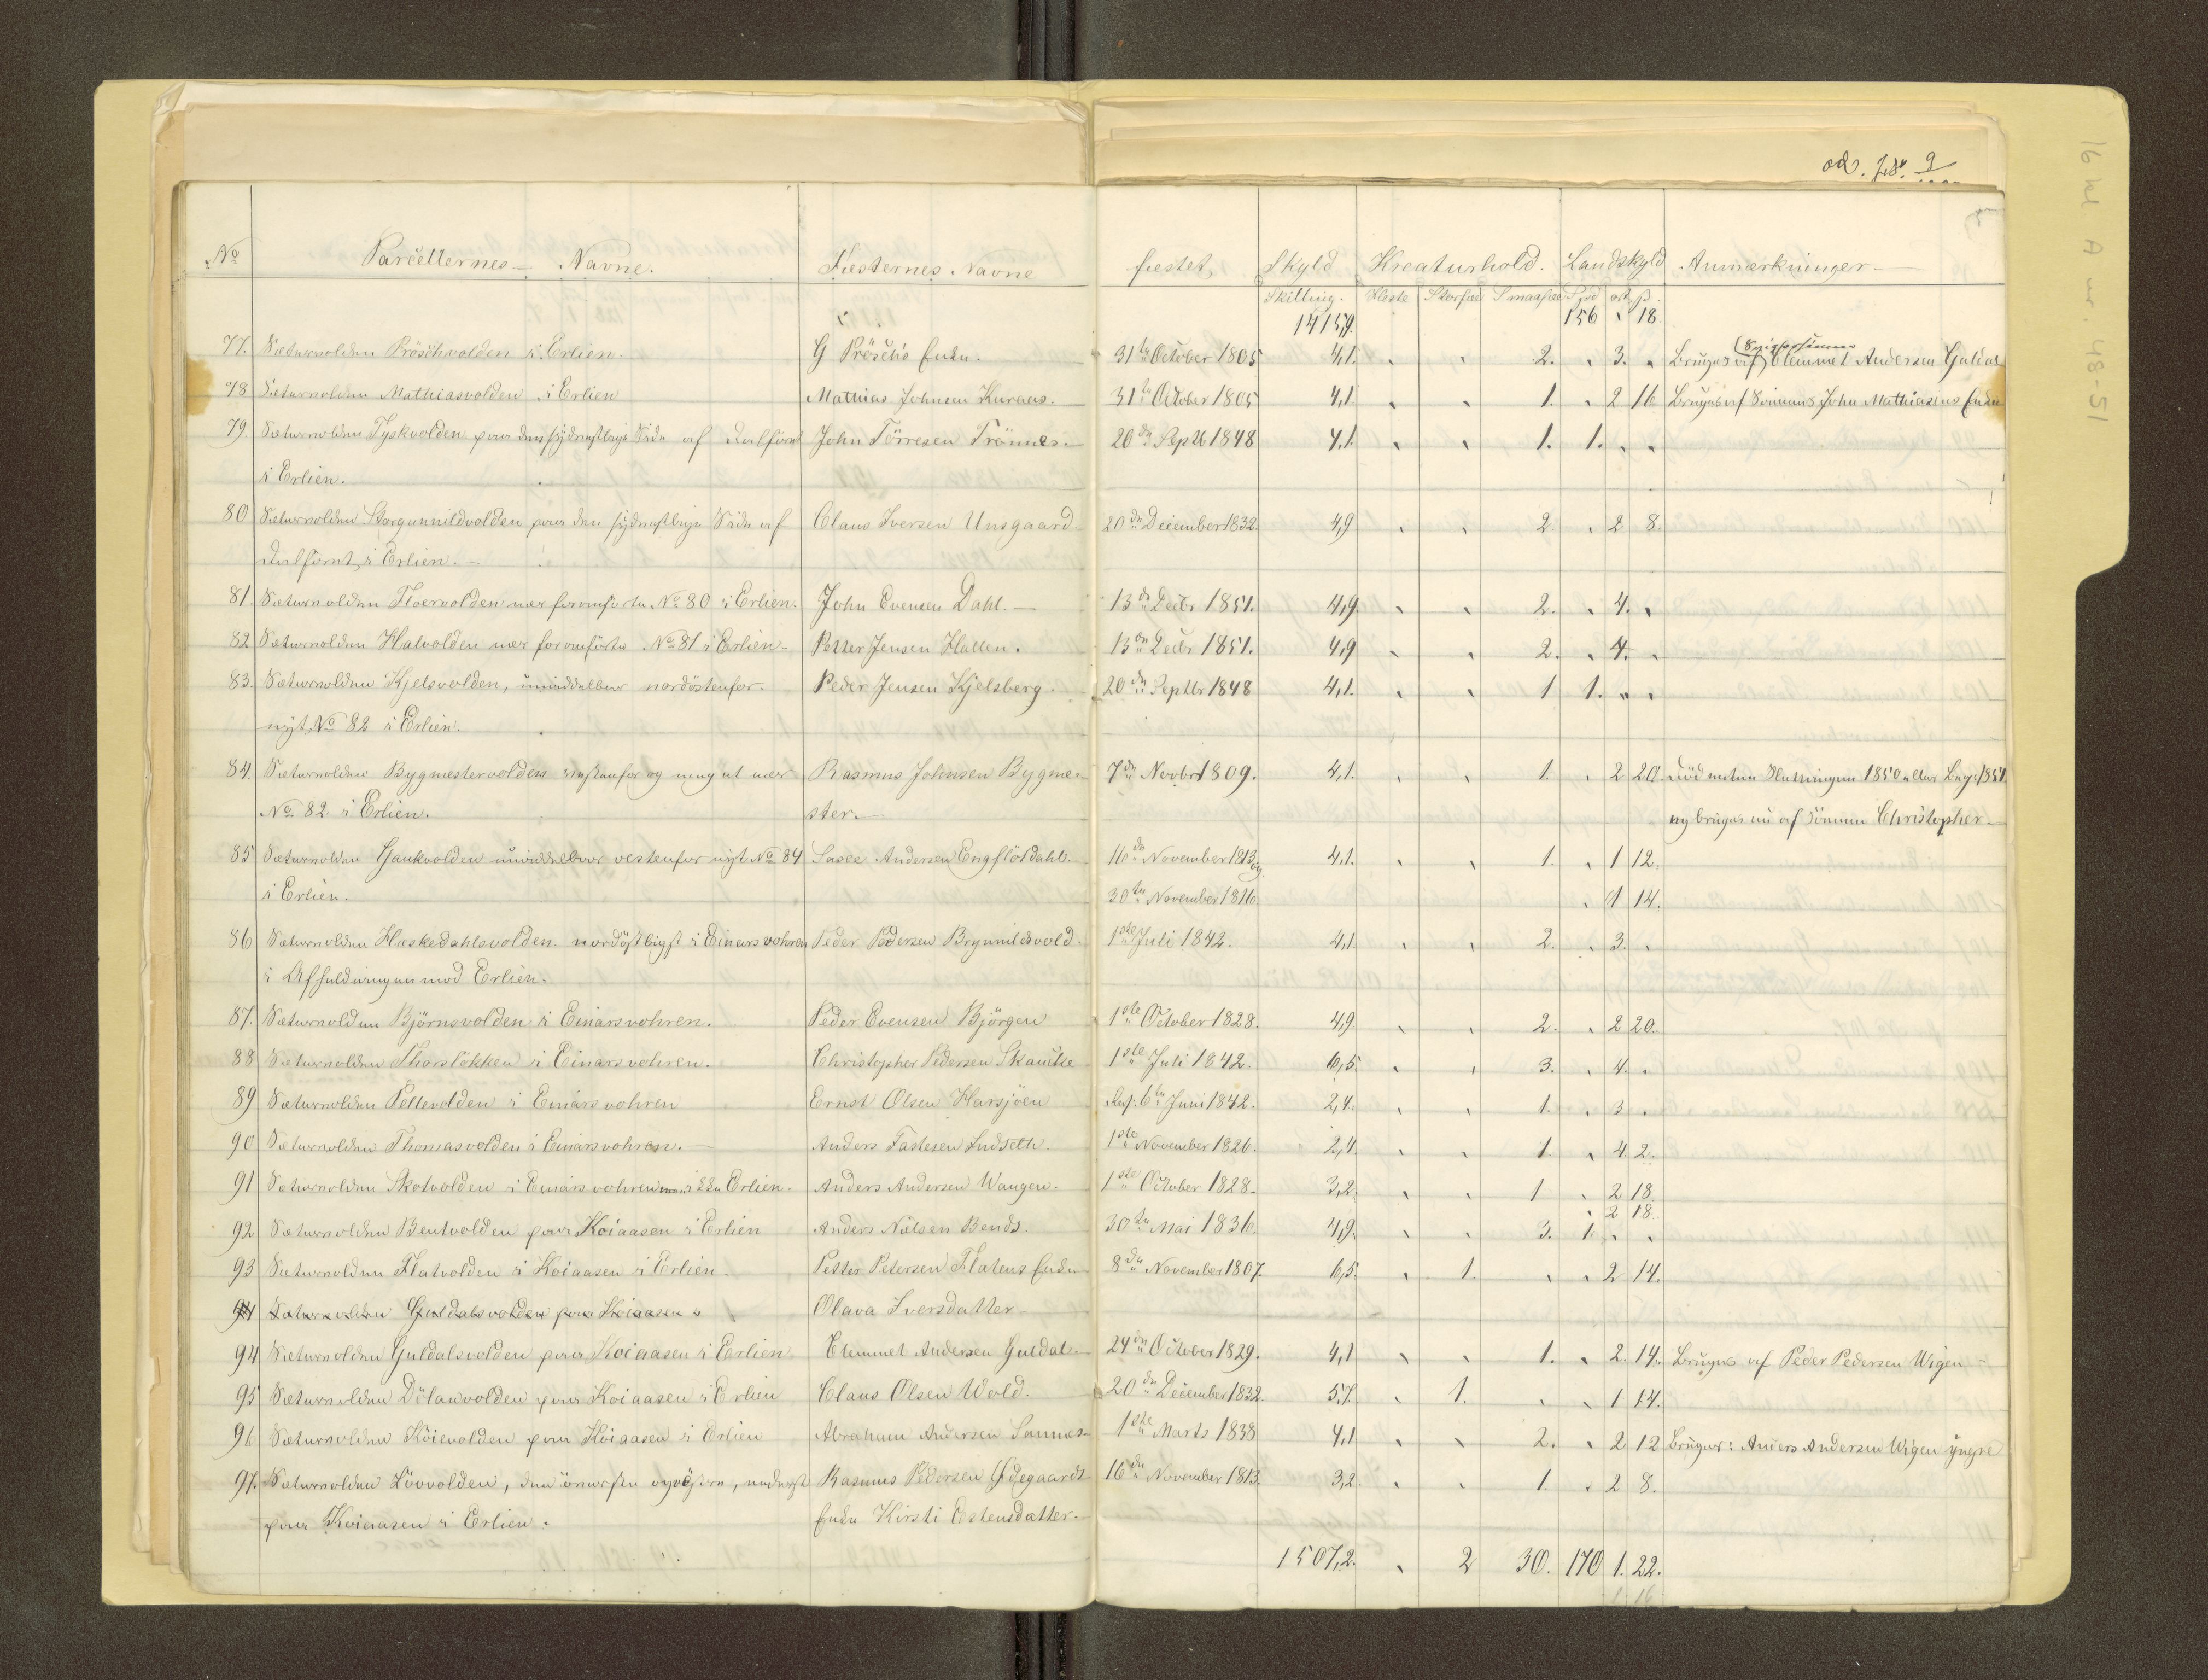 od. 9
No Parcellernes Navne. Fæsternes Navne fæstet, Skyld Kreaturhold. Landskyld Anmærkninger
Skilling. Heste Storfæe Smaafæe Spd ort ß.
1415,9. 156 " 18.
77. Sætervolden Pröschvolden i Erlien. G Prösch's Enke. 31te October 1805 4,1. " " 2. " 3. " Bruges af Svigersønnen Clemmet Andersen Guldal
78 Sætervolden Mathiasvolden i Erlien Mathias Johnsen Kuraas. 31te October 1805 4,1. " " 1. " 2 16 Bruges af Sønnens John Mathiasens Enke
79. Sætervolden Tyskvolden paa den sydvestlige Side af Dalføret John Törresen Trönnes. 20de Septbr 1848 4,1. " " 1. 1. " "
i Erlien.
80 Sætervolden Storgunnildvolden paa den sydvestlige Side af Claus Iversen Unsgaard 20de December 1832. 4,9 " " 2. " 2 8.
Dalføret, i Erlien.
81. Sætervolden Floervolden nær foranførte No 80 i Erlien. John Evensen Dahl. 13de Decbr 1851. 4,9 " " 2. " 4. "
82 Sætervolden Halvolden nær foranførte No 81 i Erlien Petter Jensen Hallen. 13de Decbr 1851. 4,9 " " 2. " 4. "
83. Sætervolden Kjelsvolden, umiddelbar nordöstenfor. Peder Jensen Kjelsberg. 20de Septbr 1848 4,1. " " 1 1. " "
nyt No 82 i Erlien.
84. Sætervolden Bygmestervolden østenfor og meget nær Rasmus Johnsen Bygme- 7de Novbr 1809. 4,1. " " 1. " 2 20. Död enten Slutningen 1850 eller Beg: 1851
No 82 i Erlien. ster. og bruges nu af Sønnen Christopher
85 Sætervolden Gaukvolden umiddelbar vestenfor nyt No 84 Lasse Andersen Engflöidahl. 16de November 1813 og 4,1. " " 1. " 1 12.
i Erlien. 30te November 1816 " 1 14.
86 Sætervolden Hæskedahlsvolden nordöstligst i Einarsvohren Peder Pedersen Brynnildsvold. 1ste Juli 1842. 4,1 " " 2. " 3. "
i Afheldningen mod Erlien.
87. Sætervolden Björnsvolden i Einarsvohren. Peder Evensen Björgen 1ste October 1828. 4,9 " " 2. " 2 20.
88 Sætervolden Thorslökken i Einarsvohren. Christopher Pedersen Skancke 1ste Juli 1842. 6,5. " " 3. " 4. "
89 Sætervolden Pellevolden i Einarsvohren Ernst Olsen Harsjöen Res. 6te Juni 1842. 2,4. " " 1. " 3 "
90 Sætervolden Thomasvolden i Einarsvohren. Anders Fastesen Indseth. 1ste November 1826. 2,4. " " 1 " 4. 2.
91 Sætervolden Skotvolden i Einarsvohren Erlien. Anders Andersen Wangen. 1ste October 1828. 3,2. " " 1 " 2 18.
" 2 18.
92 Sætervolden Bentvolden paa Koiaasen i Erlien Anders Nielsen Bends. 30te Mai 1836. 4,9. " " 3. 1. " "
93 Sætervolden Flatvolden i Koiaasen i Erlien. Petter Petersen Flatens Enke 8de November 1807. 6,5. " 1. " " 2 14.
94 Sætervolden Guldalsvolden paa Koiaasen i Olava Iversdatter
94 Sætervolden Guldalsvolden paa Koiaasen i Erlien Clemmet Andersen Guldal 24de October 1829. 4,1 " " 1. " 2. 14. Bruges af Peder Pedersen Wigen
95 Sætervolden Dölanvolden paa Koiaasen i Erlien Claus Olsen Wold. 20de December 1832. 5,7. " 1. " " 1 14.
96 Sætervolden Köievolden paa Koiaasen i Erlien Abraham Andersen Sannæs 1ste Marts 1838 4,1 " " 2. " 2 12 Bruger: Anders Andersen Wigen yngre
97. Sætervolden Lövvolden, den överste, nederst Rasmus Pedersen Ödegaards 16de November 1813. 3,2. " " 1. " 2 8.
paa Koiaasen i Erlien. Enke Kirsti Estensdatter.
1507,2. " 2 30. 170 1. 22.
1 16
16 hd A nr. 48-51